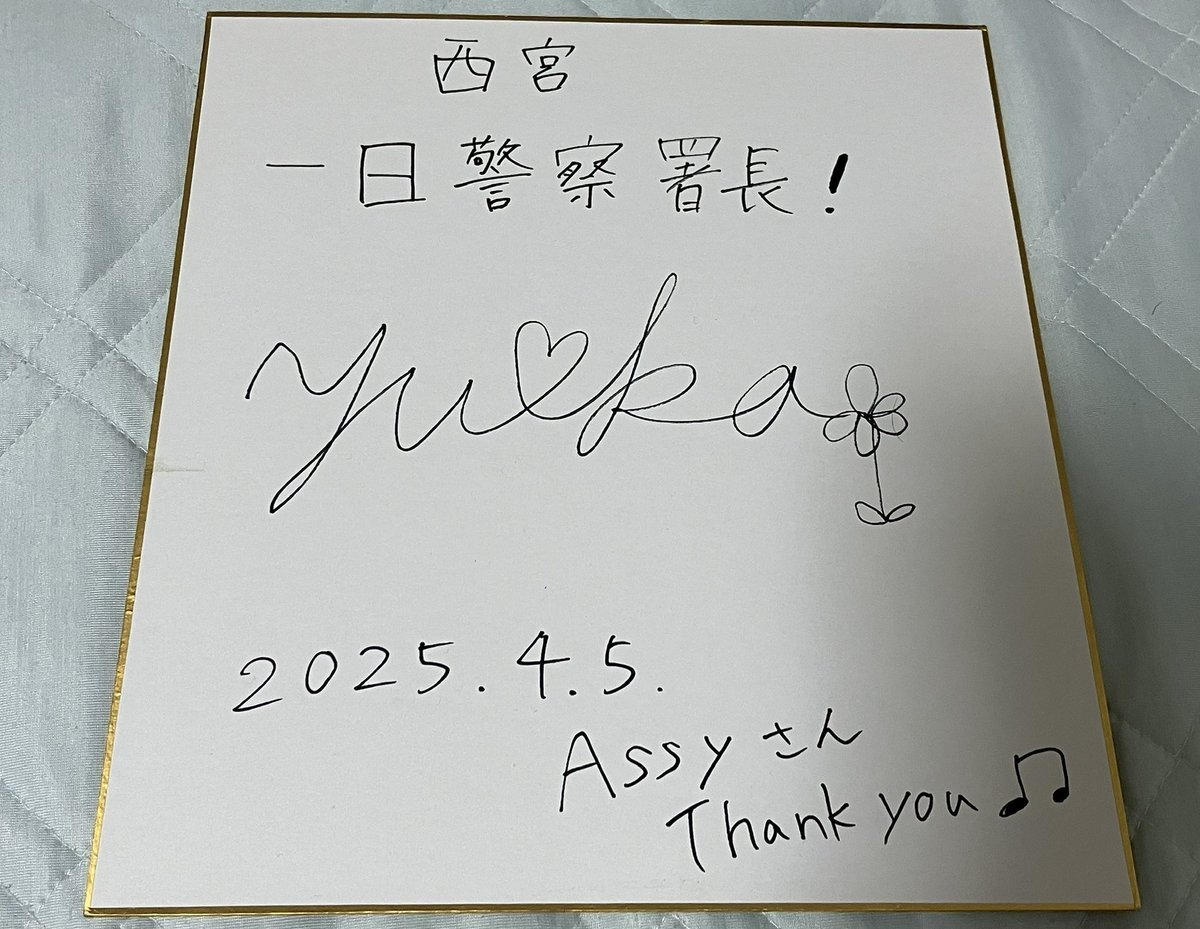 西宮
一日警察署長!
yuka
2025.4.5.
Assyさん
Thank you♫